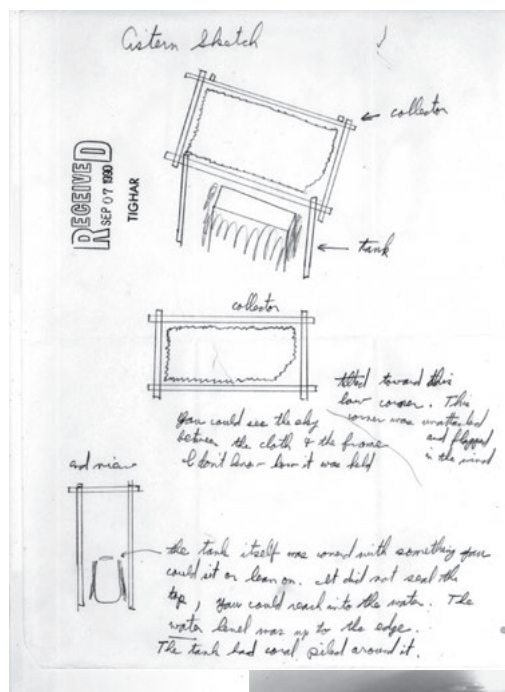 Cistern Sketch
collector
RECEIVED
SEP 07 1990
TIGHAR
tank
collector
tilted toward this
low corner. This
corner was unattached
and flapped
in the wind
you could see the sky
between the cloth & the frame
I don't know how it was held
end view
the tank itself was covered with something you
could sit or lean on. It did not seal the
top, you could reach into the water. The
water level was up to the edge.
The tank had coral piled around it.